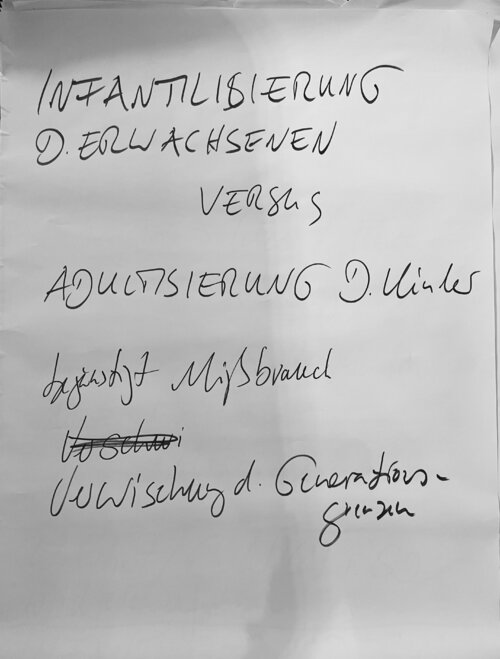 INFANTILISIERUNG
D. ERWACHSENEN
VERSUS
ADULTISIERUNG D. Kinder
begünstigt Mißbrauch
Verwischung d. Generations-
grenzen